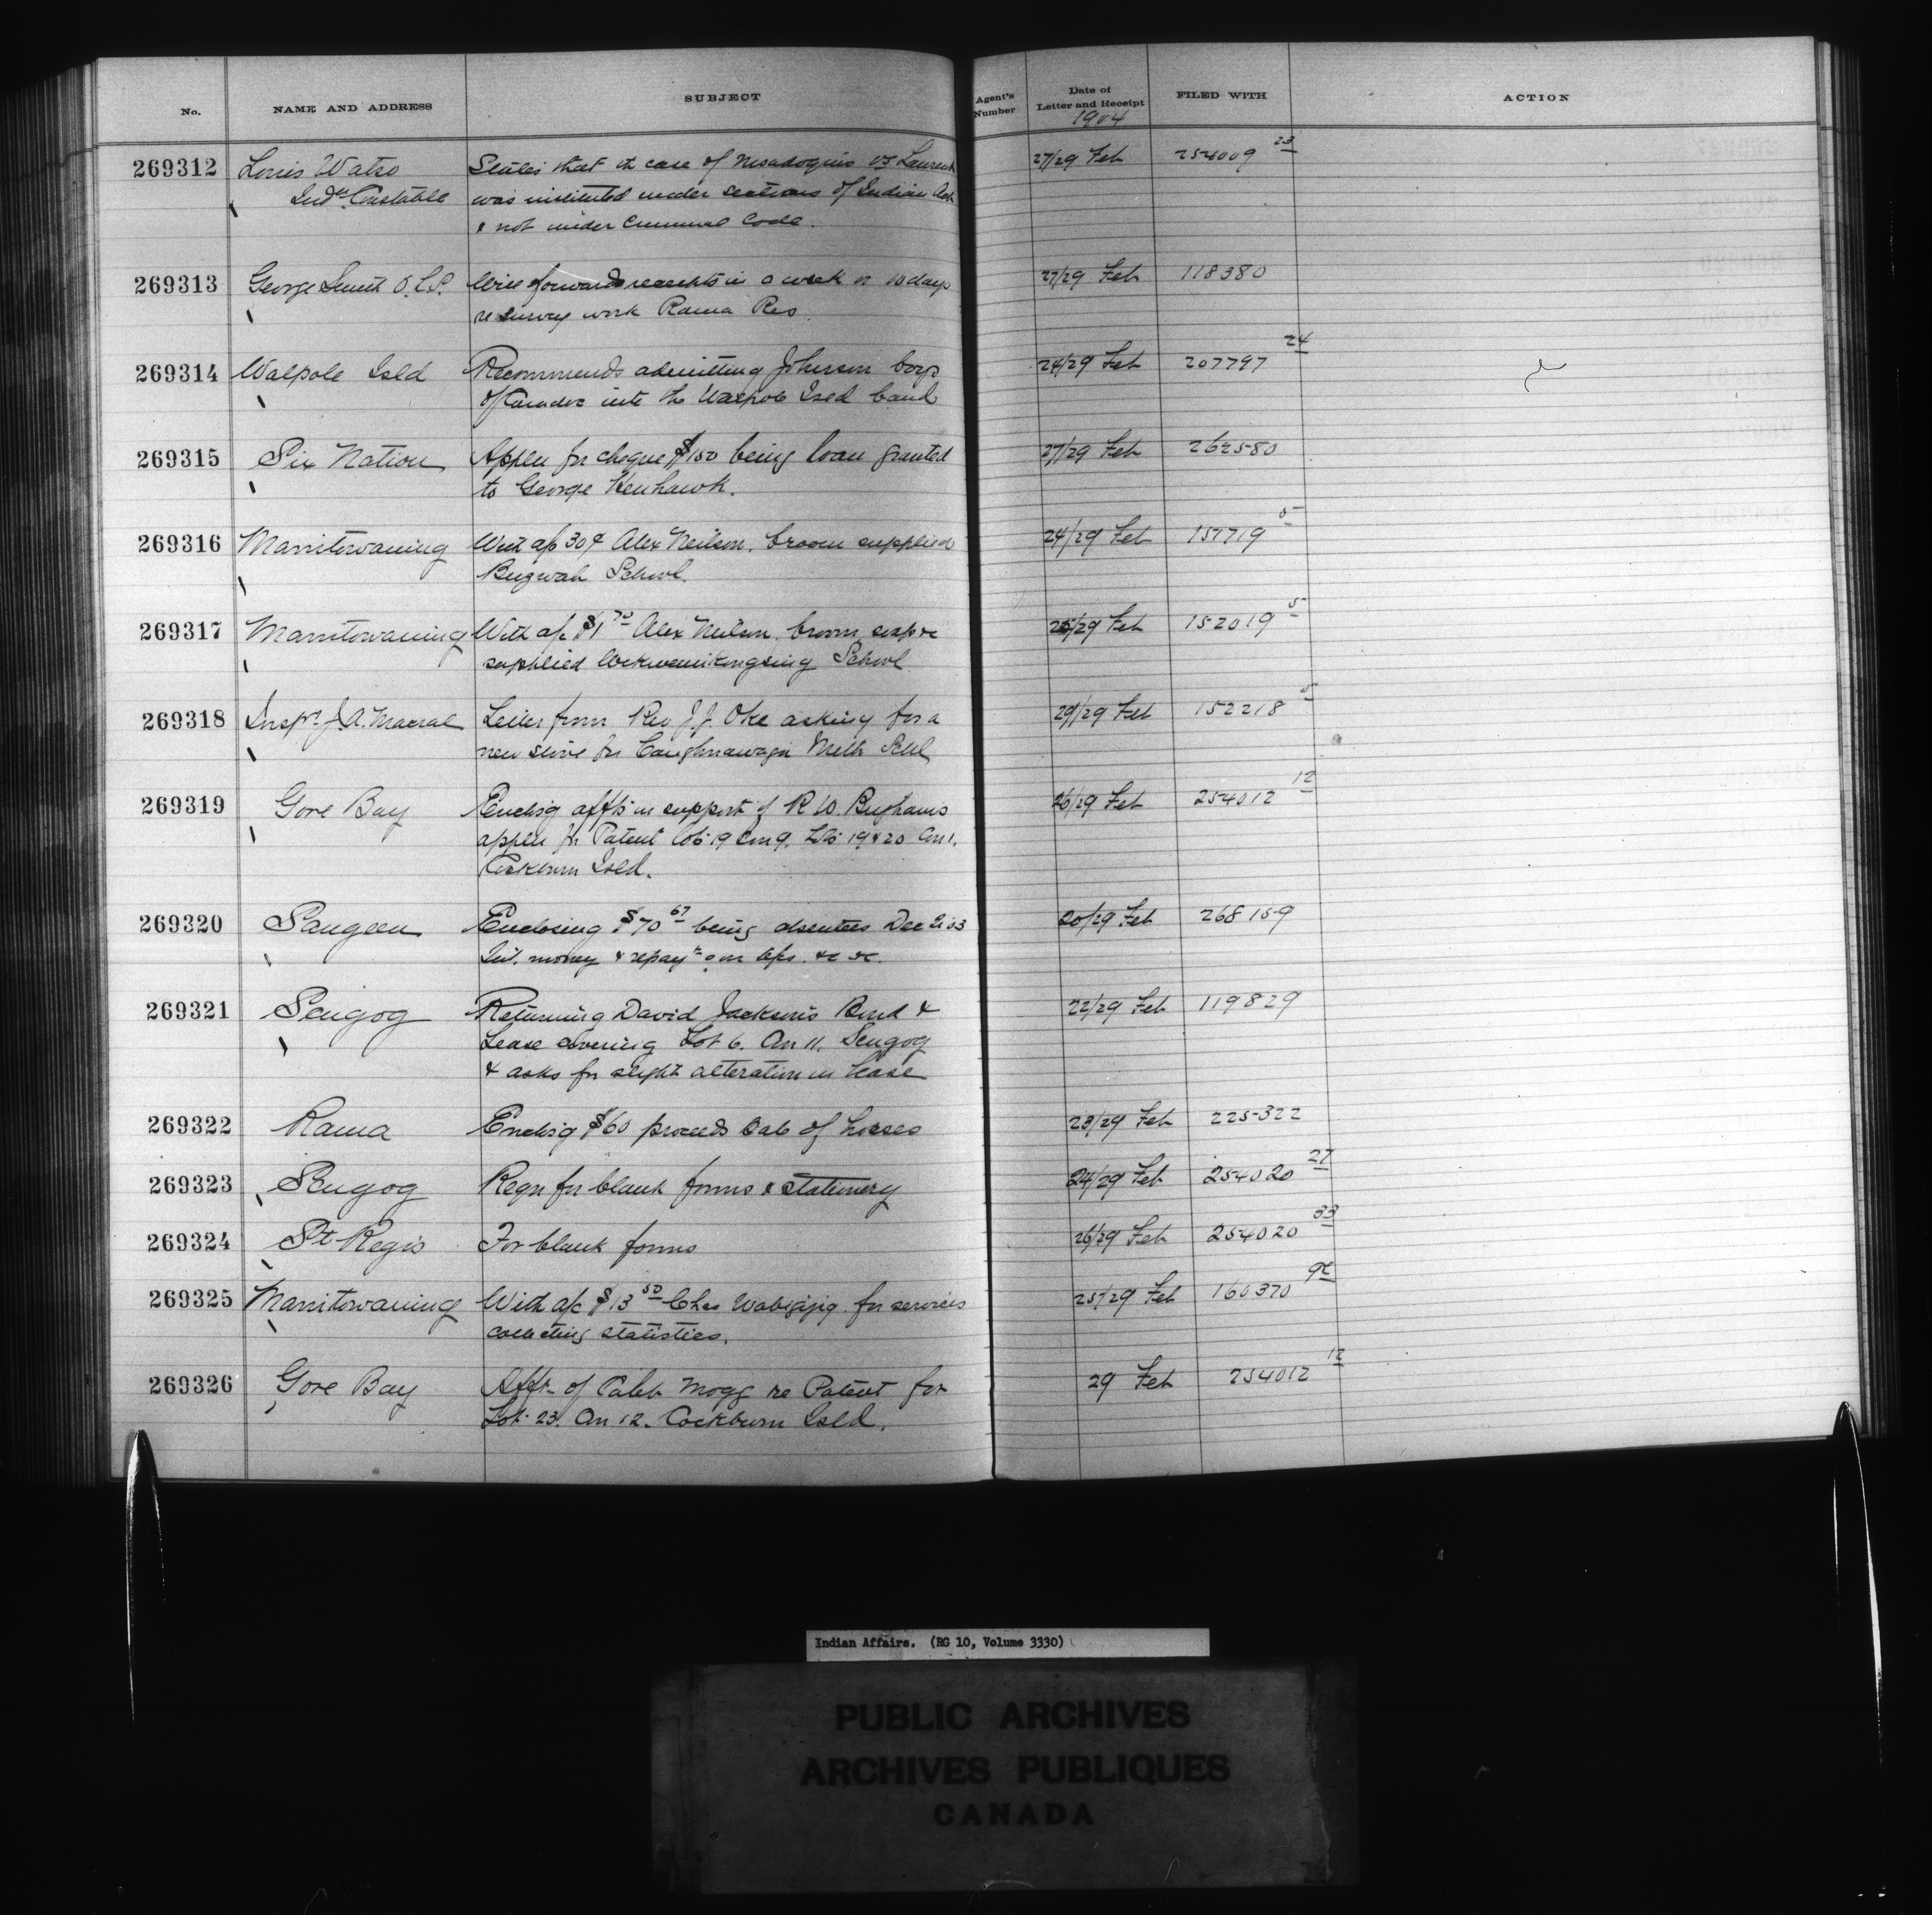 No. NAME AND ADDRESS SUBJECT Agent's Number Date of Letter and Receipt FILED WITH ACTION
1904
269312 Louis Watso States that the case of vs Laurent 27/29 Feb 254009 23
Indn Constable was instituted under sections of Indian Act
& not under Criminal Code.
269313 George Smith O.L.S. Will forward receipts in a week or 10 days 27/29 Feb 118380
re survey work Rama Res.
269314 Walpole Isld Recommends admitting Johnson boys 24/29 Feb 207797 24
of Caradoc into the Walpole Isld band
269315 Six Nation Appln for cheque $150 being loan granted 27/29 Feb 262580
to George Henhawk.
269316 Manitowaning With a/c 30¢ Alex Neilson. broom supplied 24/29 Feb 151719 5
School.
269317 Manitowaning With a/c $1 Alex Neilson. broom, soap &c 25/29 Feb 152019 5
supplied Wekwemikongsing School
269318 Inspr J.A. Macrae Letter from Rev J.J. Oke asking for a 29/29 Feb 152218 5
new stove for Caughnawaga Meth Schl
269319 Gore Bay Enclsg affts in support of R W. Binghams 26/29 Feb 254012 12
appln for Patent Lot 19 Con 9. Lots 19 & 20 Con 1.
Cockburn Isld.
269320 Saugeen Enclosing $70 67 being absentees Dec 21 03 20/29 Feb 268159
Int. money & repayts on a/cs. &c &c.
269321 Scugog Returning David Jackson's Bond & 22/29 Feb 119829
Lease covering Lot 6. Con 11. Scugog
& asks for slight alteration in lease
269322 Rama Enclsg $60 proceeds Sale of horses 23/29 Feb 225322
269323 Scugog Reqn for blank forms & stationery 24/29 Feb 254020 27
269324 St Regis For blank forms 26/29 Feb 254020 33
269325 Manitowaning With a/c $13 50 Chas Wabigijig for services 25/29 Feb 160370
collecting statistics.
269326 Gore Bay Afft. of Caleb Mogg re Patent for 29 Feb 254012 12
Lot 23. Con 12. Cockburn Isld.
Indian Affairs. (RG 10, Volume 3330)
PUBLIC ARCHIVES
ARCHIVES PUBLIQUES
CANADA